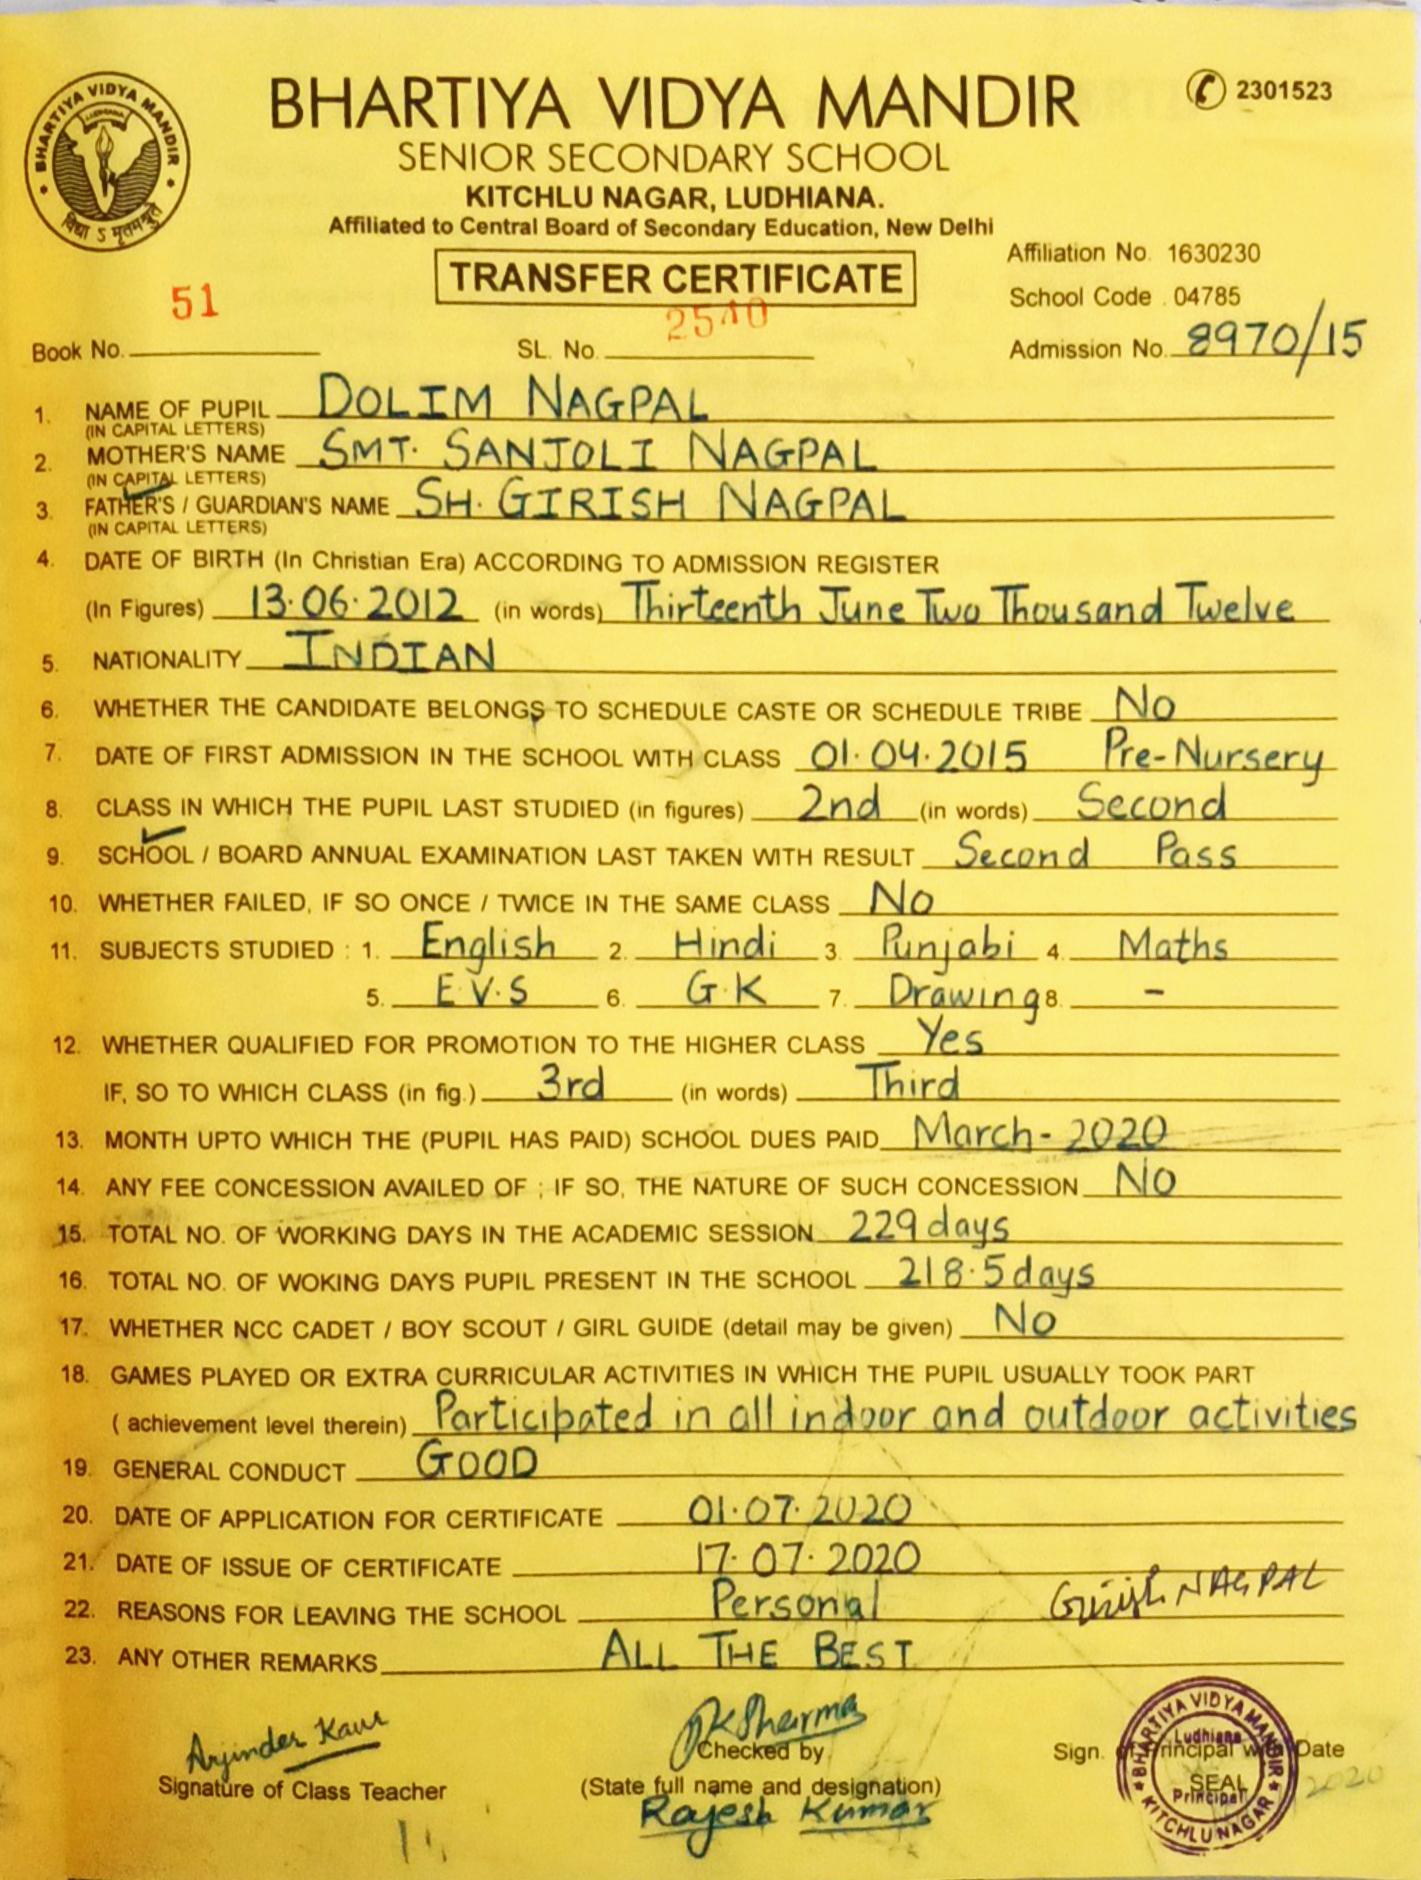 BHARTIYA VIDYA MANDIR
LUDHIANA
विद्या ऽ मृतमश्नुते
BHARTIYA VIDYA MANDIR
2301523
SENIOR SECONDARY SCHOOL
KITCHLU NAGAR, LUDHIANA.
Affiliated to Central Board of Secondary Education, New Delhi
TRANSFER CERTIFICATE
Affiliation No. 1630230
School Code . 04785
Book No. 51 SL. No. 2540 Admission No. 8970/15
1. NAME OF PUPIL DOLIM NAGPAL
(IN CAPITAL LETTERS)
2. MOTHER'S NAME SMT. SANJOLI NAGPAL
(IN CAPITAL LETTERS)
3. FATHER'S / GUARDIAN'S NAME SH. GIRISH NAGPAL
(IN CAPITAL LETTERS)
4. DATE OF BIRTH (In Christian Era) ACCORDING TO ADMISSION REGISTER
(In Figures) 13.06.2012 (in words) Thirteenth June Two Thousand Twelve
5. NATIONALITY INDIAN
6. WHETHER THE CANDIDATE BELONGS TO SCHEDULE CASTE OR SCHEDULE TRIBE No
7. DATE OF FIRST ADMISSION IN THE SCHOOL WITH CLASS 01.04.2015 Pre-Nursery
8. CLASS IN WHICH THE PUPIL LAST STUDIED (in figures) 2nd (in words) Second
9. SCHOOL / BOARD ANNUAL EXAMINATION LAST TAKEN WITH RESULT Second Pass
10. WHETHER FAILED, IF SO ONCE / TWICE IN THE SAME CLASS No
11. SUBJECTS STUDIED : 1. English 2. Hindi 3. Punjabi 4. Maths
5. E.V.S 6. G.K 7. Drawing 8. -
12. WHETHER QUALIFIED FOR PROMOTION TO THE HIGHER CLASS Yes
IF, SO TO WHICH CLASS (in fig.) 3rd (in words) Third
13. MONTH UPTO WHICH THE (PUPIL HAS PAID) SCHOOL DUES PAID March-2020
14. ANY FEE CONCESSION AVAILED OF ; IF SO, THE NATURE OF SUCH CONCESSION No
15. TOTAL NO. OF WORKING DAYS IN THE ACADEMIC SESSION 229 days
16. TOTAL NO. OF WOKING DAYS PUPIL PRESENT IN THE SCHOOL 218.5 days
17. WHETHER NCC CADET / BOY SCOUT / GIRL GUIDE (detail may be given) No
18. GAMES PLAYED OR EXTRA CURRICULAR ACTIVITIES IN WHICH THE PUPIL USUALLY TOOK PART
( achievement level therein) Participated in all indoor and outdoor activities
19. GENERAL CONDUCT GOOD
20. DATE OF APPLICATION FOR CERTIFICATE 01.07.2020
21. DATE OF ISSUE OF CERTIFICATE 17.07.2020
22. REASONS FOR LEAVING THE SCHOOL Personal
Girish NAGPAL
23. ANY OTHER REMARKS ALL THE BEST
Arjinder Kaur
Signature of Class Teacher
PK Sharma
Checked by
(State full name and designation)
Rajesh Kumar
Sign. of Principal with Date
SEAL
2020
BHARTIYA VIDYA MANDIR
Ludhiana
Principal
KITCHLU NAGAR